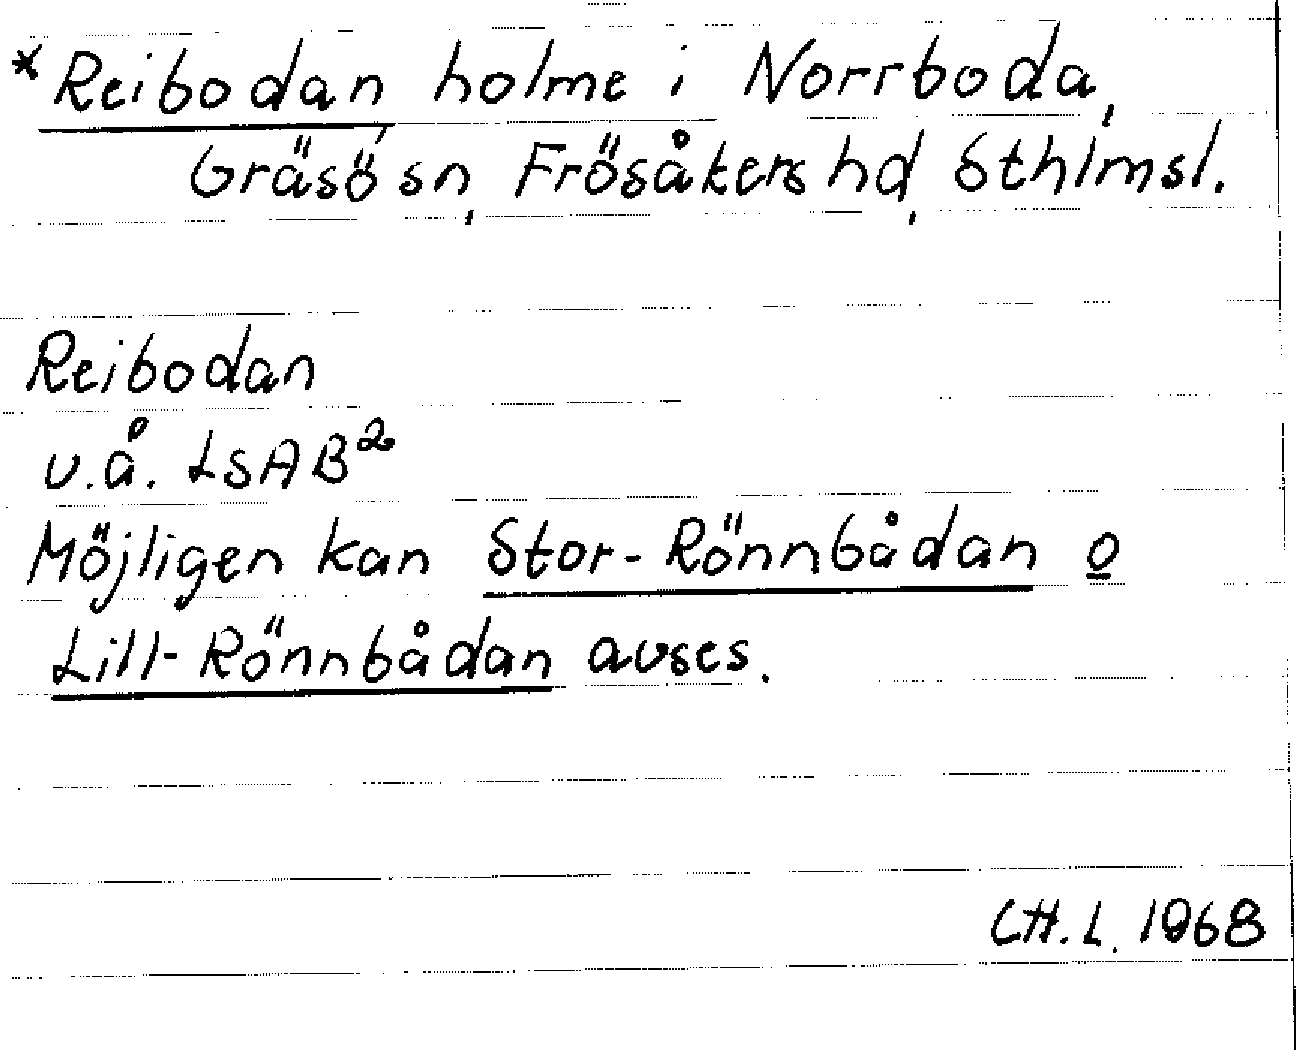 *Reibodan holme i Norrboda,
Gräsö sn, Frösåkers hd, Sthlmsl.
Reibodan
u.å. LSAB²
Möjligen kan Stor-Rönnbådan o
Lill-Rönnbådan avses.
CH.L. 1968